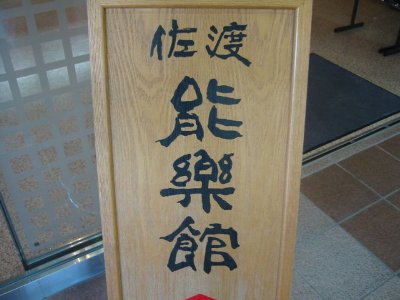 佐渡
能樂館